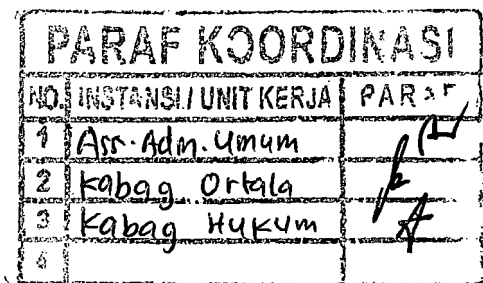 PARAF KOORDINASI
NO. INSTANSI / UNIT KERJA PARAF
1 Ass. Adm. Umum
2 Kabag Ortala
3 Kabag Hukum
4